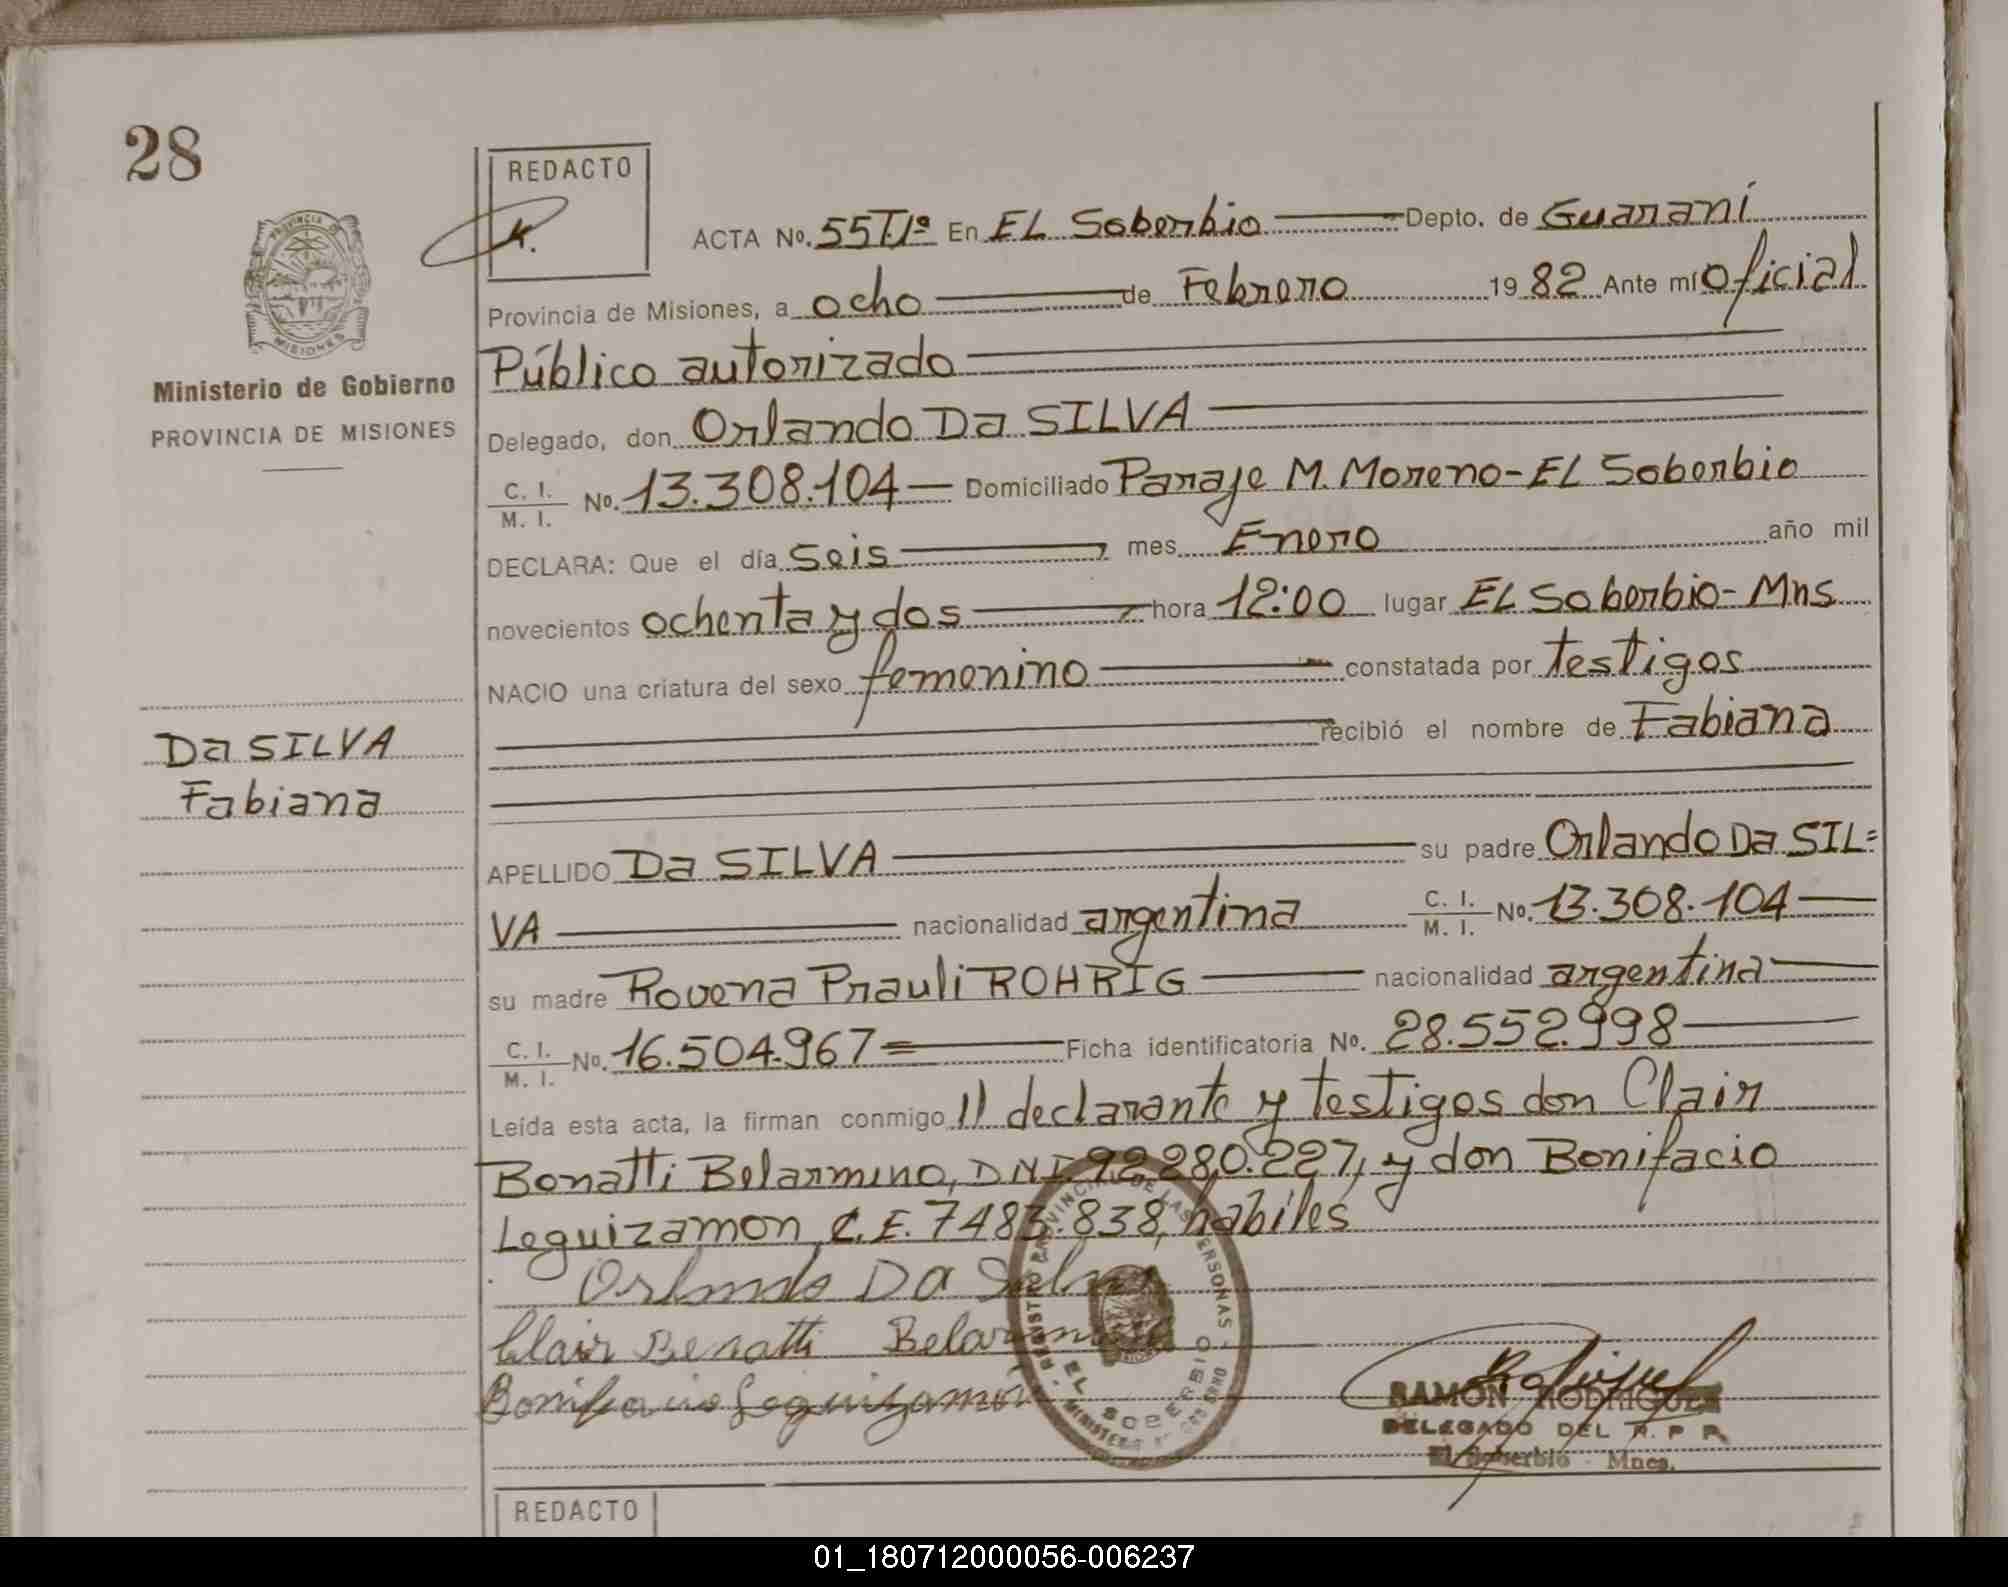 28
REDACTO
ACTA No. 55 T.1º En EL Soberbio Depto. de Guaraní
Provincia de Misiones, a ocho de Febrero 1982 Ante mí Oficial
Público autorizado
Delegado, don Orlando Da SILVA
C. I. / M. I. No. 13.308.104 — Domiciliado Paraje M. Moreno - EL Soberbio
DECLARA: Que el día Seis mes Enero año mil
novecientos ochenta y dos hora 12:00 lugar EL Soberbio - Mns
NACIO una criatura del sexo femenino constatada por testigos
recibió el nombre de Fabiana
APELLIDO Da SILVA su padre Orlando Da SIL=
VA nacionalidad argentina C. I. / M. I. No. 13.308.104
su madre Rovena Prauli ROHRIG nacionalidad argentina
C. I. / M. I. No. 16.504.967= Ficha identificatoria No. 28.552.998
Leída esta acta, la firman conmigo el declarante y testigos don Clair
Bonatti Belarmino, DNI 92.280.227, y don Bonifacio
Leguizamon C.E. 7483.838, habiles
Orlando Da Silva
Clair Benatti Belarmino
Bonifacio Leguizamón
PROVINCIA
MISIONES
Ministerio de Gobierno
PROVINCIA DE MISIONES
Da SILVA
Fabiana
REGISTRO PROVINCIAL DE LAS PERSONAS
EL SOBERBIO
MINISTERIO DE GOBIERNO
RAMON RODRIGUEZ
DELEGADO DEL R. P. P.
El Soberbio - Mnes.
REDACTO
01_180712000056-006237